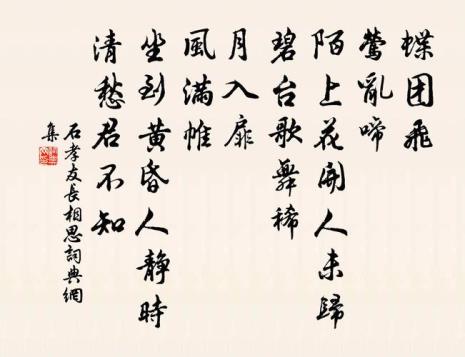 蝶团飛
鶯亂啼
陌上花開人未歸
碧台歌舞稀
月入扉
風滿帷
坐到黄昏人静時
清愁君不知
石孝友長相思詞典網
集